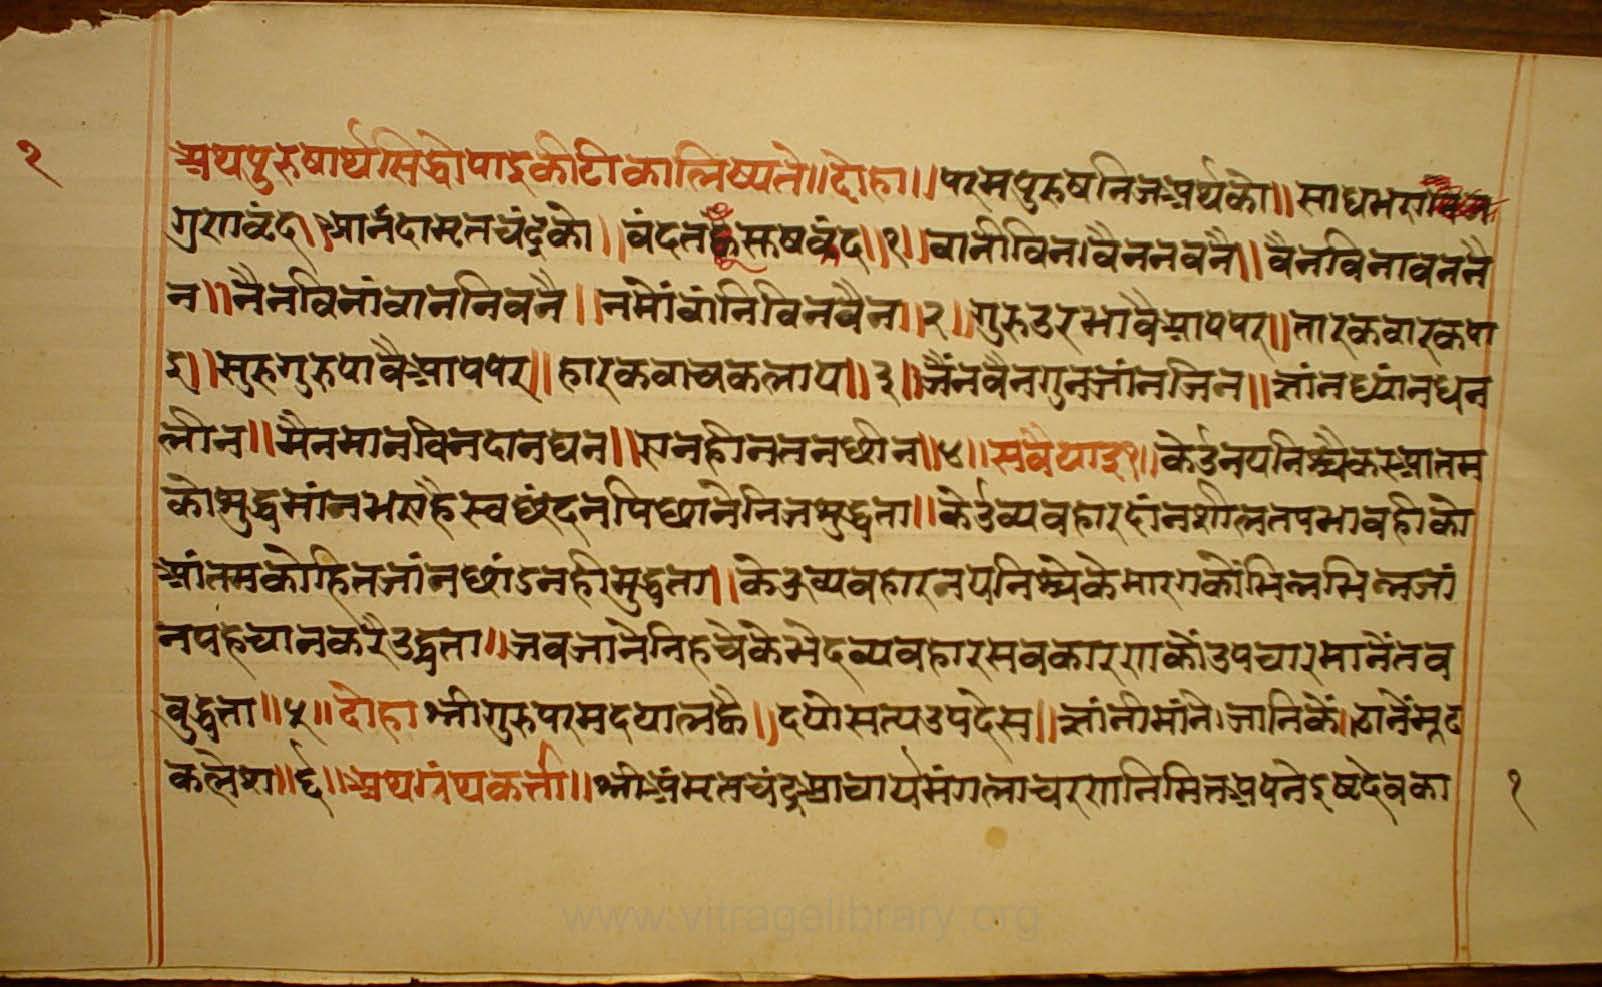 १
अथपुरुषार्थसिद्धोपाइकीटीकालिष्यते॥दोहा॥परमपुरुषनिजअर्थको॥साधभए
गुणवृंद॥आनंदामृतचंद्रको॥वंदतहूँसुषकंद॥१॥वानीविनवैननवनै॥वैनविनावननै
न॥नैनविनांवाननिवनै॥नमोंवांनिविनवैन॥२॥गुरुउरभावैआपपर॥तारकवारकपा
इ॥सुरुगुरुपावैआपपर॥हारकवाचकलाप॥३॥जैंनवैनगुनजांनजिन॥ज्ञांनध्यांनधन
लीन॥मैनमानविनदानघन॥एनहीनतनछीन॥४॥सवैयाइ१॥केईनयनिश्चैकरआतम
कोशुद्धमांनभएहैस्वछंदनपिछानेनिजशुद्धता॥केईव्यवहारदांनशीलतपभावहीको
आंतमकोहितजांनछांडनहीमुद्धता॥केऊव्यवहारनयनिश्चेकेमारगकोंभिन्नभिन्नजां
नपहचानकरैउद्धता॥जवजानेनिहचेकेभेदव्यवहारसवकारणकोंउपचारमानैंतव
वुद्धता॥५॥दोहाश्रीगुरुपरमदयालह्वै॥दयोसत्यउपदेस॥ज्ञांनीमांने।जानिकें।ठानेंमूढ
कलेश॥६॥अथग्रंथकर्त्ता॥श्रीअंमृतचंद्रआचार्यमंगलाचरणनिमित्तअपनेइष्टदेवका
१
www.vitragelibrary.org